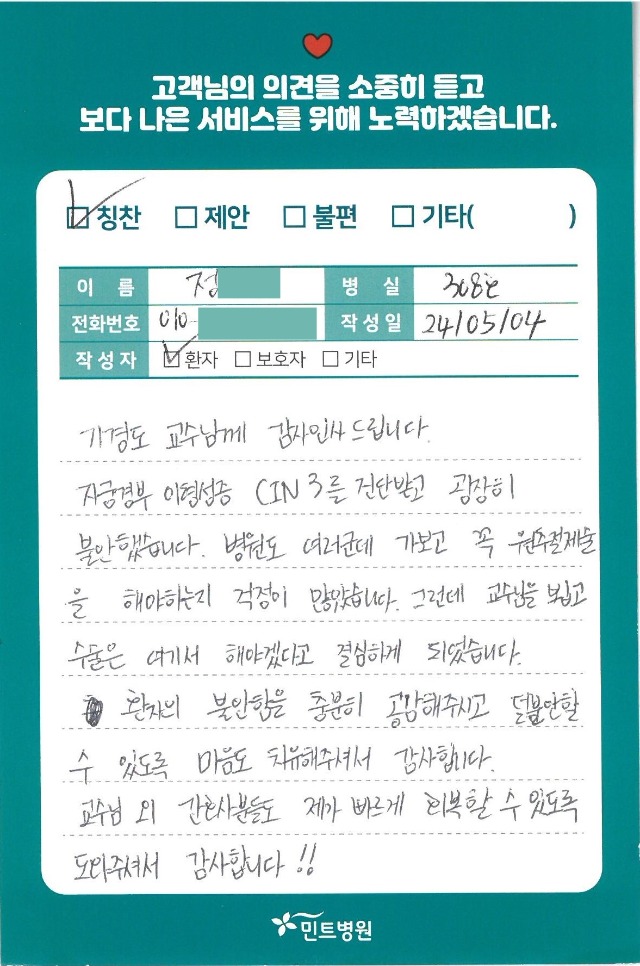 고객님의 의견을 소중히 듣고
보다 나은 서비스를 위해 노력하겠습니다.
칭찬 제안 불편 기타( )
이 름 정 병 실 308호
전화번호 010- 작성일 24/05/04
작성자 환자 보호자 기타
기경도 교수님께 감사인사드립니다.
자궁경부 이형성증 CIN 3를 진단받고 굉장히
불안했습니다. 병원도 여러군데 가보고 꼭 원추절제술
을 해야하는지 걱정이 많았습니다. 그런데 교수님을 뵙고
수술은 여기서 해야겠다고 결심하게 되었습니다.
환자의 불안함을 충분히 공감해주시고 덜불안할
수 있도록 마음도 치유해주셔서 감사합니다.
교수님 외 간호사분들도 제가 빠르게 회복할 수 있도록
도와주셔서 감사합니다!!
민트병원